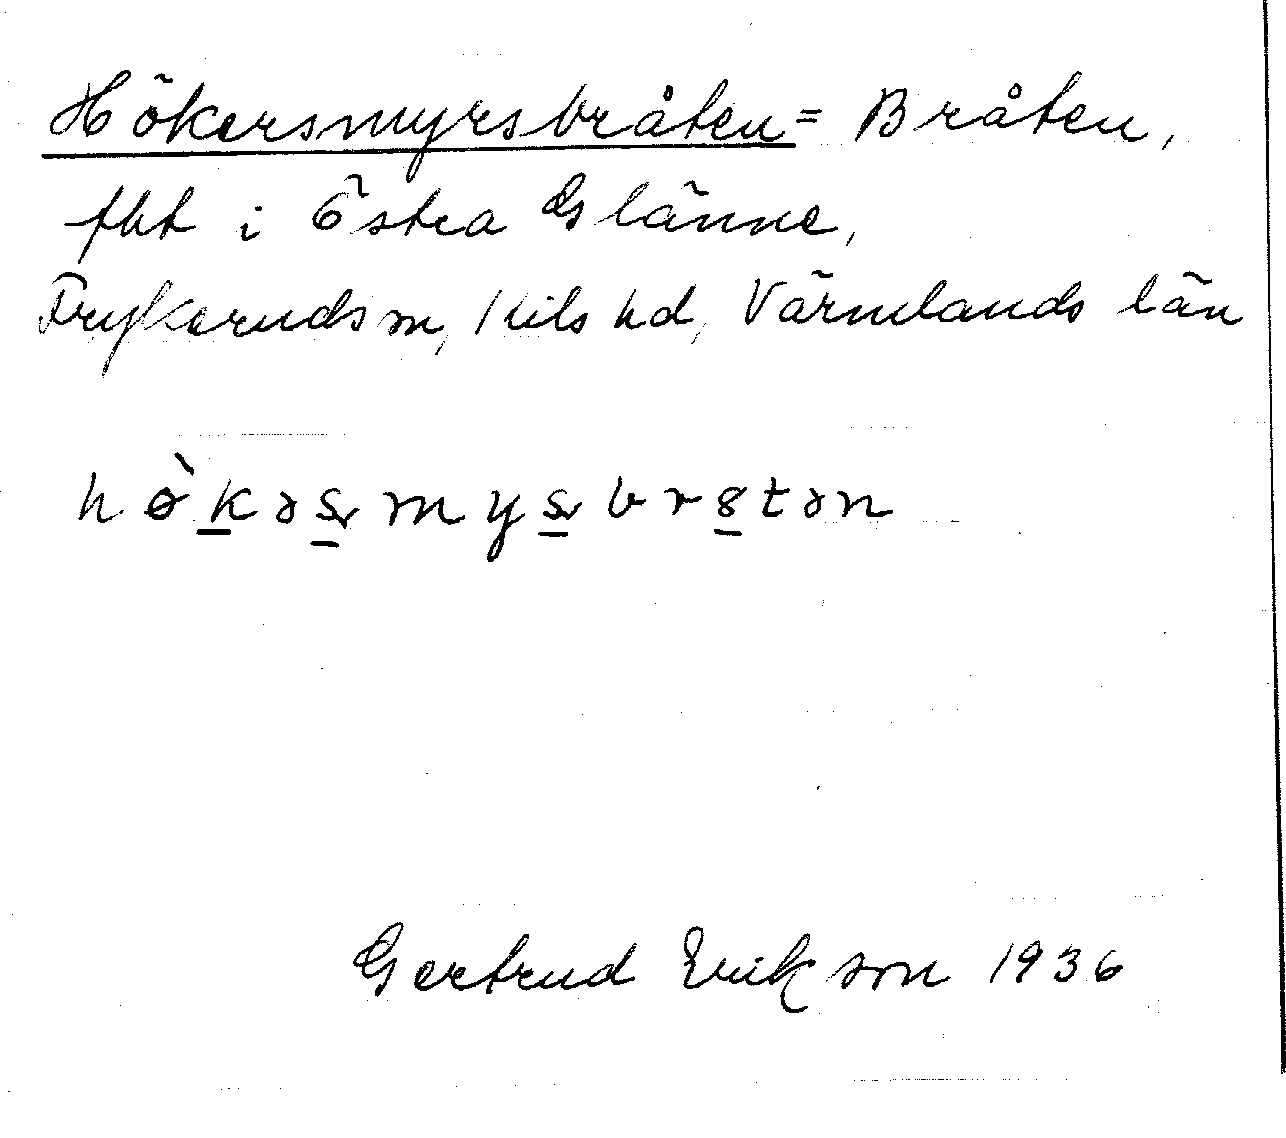 Hökersmyrsbråten = Bråten,
fht i Östra Glänne,
Frykeruds sn, Kils hd, Värmlands län
hø̀kəsmysbr8tən
Gertrud Erikson 1936